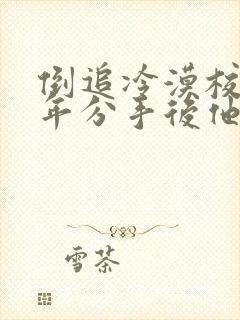 倒追冷漠校
年分手後他
雪茶